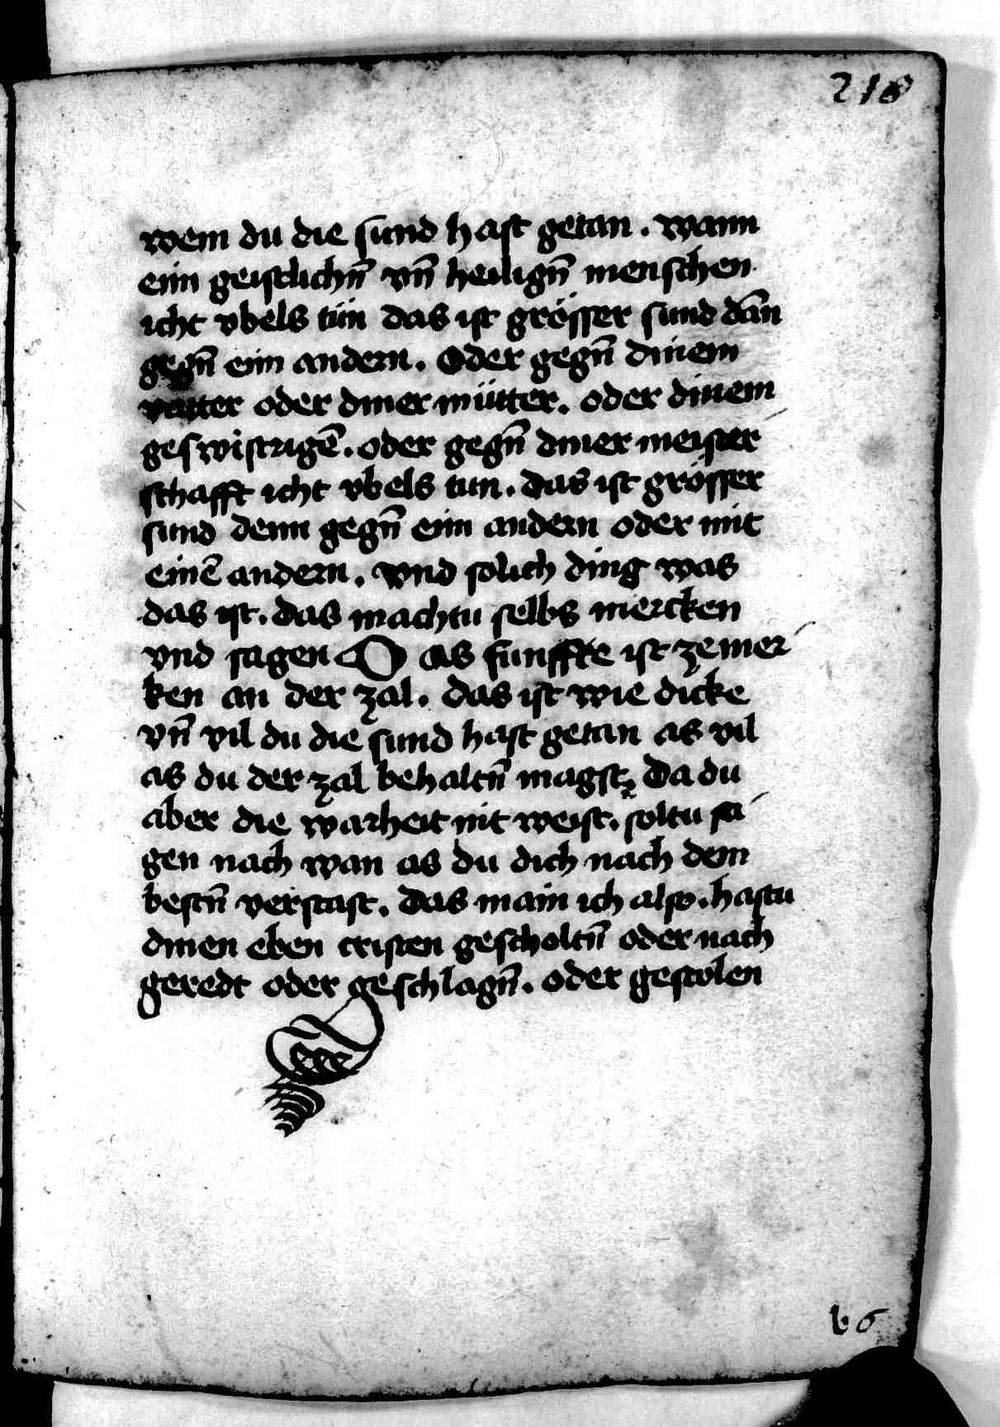 218
wem du die sund hast getan . wann
eim geistlichñ vñ heiligñ menschen
icht vbels tün das ist grösser sund dãn
gegñ eim andern . Oder gegñ dinem
vatter oder diner mütter . oder dinem
geswistrigẽ . oder gegñ diner meister
schafft icht vbels tun . das ist grösser
sund denn gegñ eim andern oder mit
einẽ andern . vnd solich ding was
das ist . das machtu selbs mercken
vnd sagen Das funffte ist zemer
ken an der zal . das ist wie dicke
vñ vil du die sund hast getan as vil
as du der zal behaltñ magst Da du
aber die warheit nit weist . soltu sa
gen nach wan as du dich nach dem
bestñ verstast . das main ich also . hastu
dinen eben cristen gescholtñ oder nach
geredt oder geschlagñ . oder gestolen
b 6